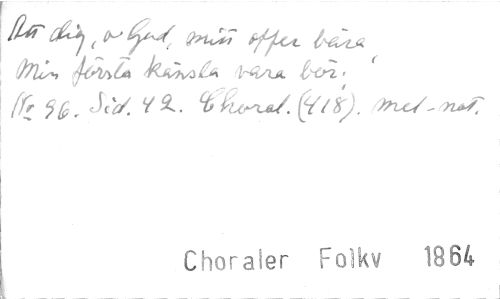 Att dig, o Gud, mitt offer bära,
Min första känsla vara bör;
No 96. Sid. 42. Choral. (418). mel-not.
Choraler Folkv 1864